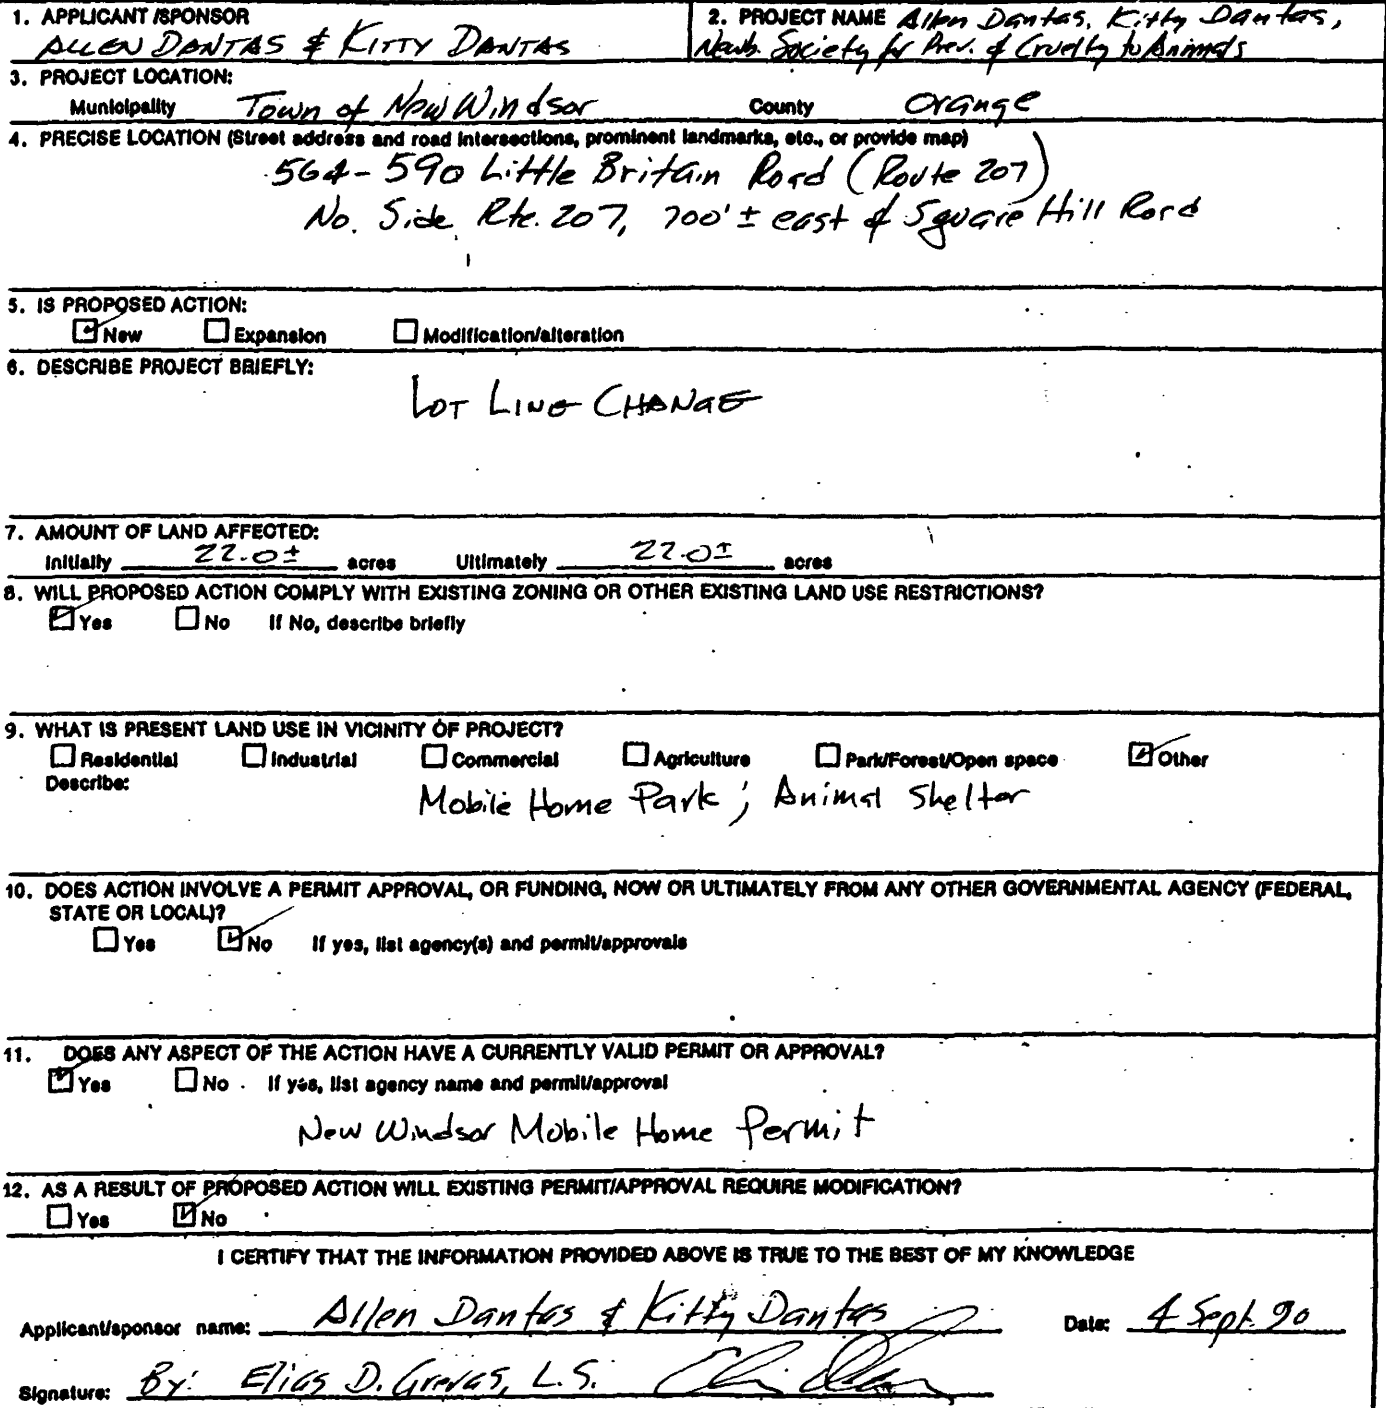 1. APPLICANT /SPONSOR
ALLEN DANTAS & KITTY DANTAS
2. PROJECT NAME Allen Dantas, Kitty Dantas,
Newb. Society for Prev. of Cruelty to Animals
3. PROJECT LOCATION:
Municipality Town of New Windsor County Orange
4. PRECISE LOCATION (Street address and road intersections, prominent landmarks, etc., or provide map)
564-590 Little Britain Road (Route 207)
No. Side Rte. 207, 700'± east of Square Hill Road
5. IS PROPOSED ACTION:
New Expansion Modification/alteration
6. DESCRIBE PROJECT BRIEFLY:
LOT LINE CHANGE
7. AMOUNT OF LAND AFFECTED:
Initially 22.0± acres Ultimately 22.0± acres
8. WILL PROPOSED ACTION COMPLY WITH EXISTING ZONING OR OTHER EXISTING LAND USE RESTRICTIONS?
Yes No If No, describe briefly
9. WHAT IS PRESENT LAND USE IN VICINITY OF PROJECT?
Residential Industrial Commercial Agriculture Park/Forest/Open space Other
Describe:
Mobile Home Park; Animal Shelter
10. DOES ACTION INVOLVE A PERMIT APPROVAL, OR FUNDING, NOW OR ULTIMATELY FROM ANY OTHER GOVERNMENTAL AGENCY (FEDERAL,
STATE OR LOCAL)?
Yes No If yes, list agency(s) and permit/approvals
11. DOES ANY ASPECT OF THE ACTION HAVE A CURRENTLY VALID PERMIT OR APPROVAL?
Yes No If yes, list agency name and permit/approval
New Windsor Mobile Home Permit
12. AS A RESULT OF PROPOSED ACTION WILL EXISTING PERMIT/APPROVAL REQUIRE MODIFICATION?
Yes No
I CERTIFY THAT THE INFORMATION PROVIDED ABOVE IS TRUE TO THE BEST OF MY KNOWLEDGE
Applicant/sponsor name: Allen Dantas & Kitty Dantas Date: 4 Sept. 90
Signature: By: Elias D. Grevas, L.S.